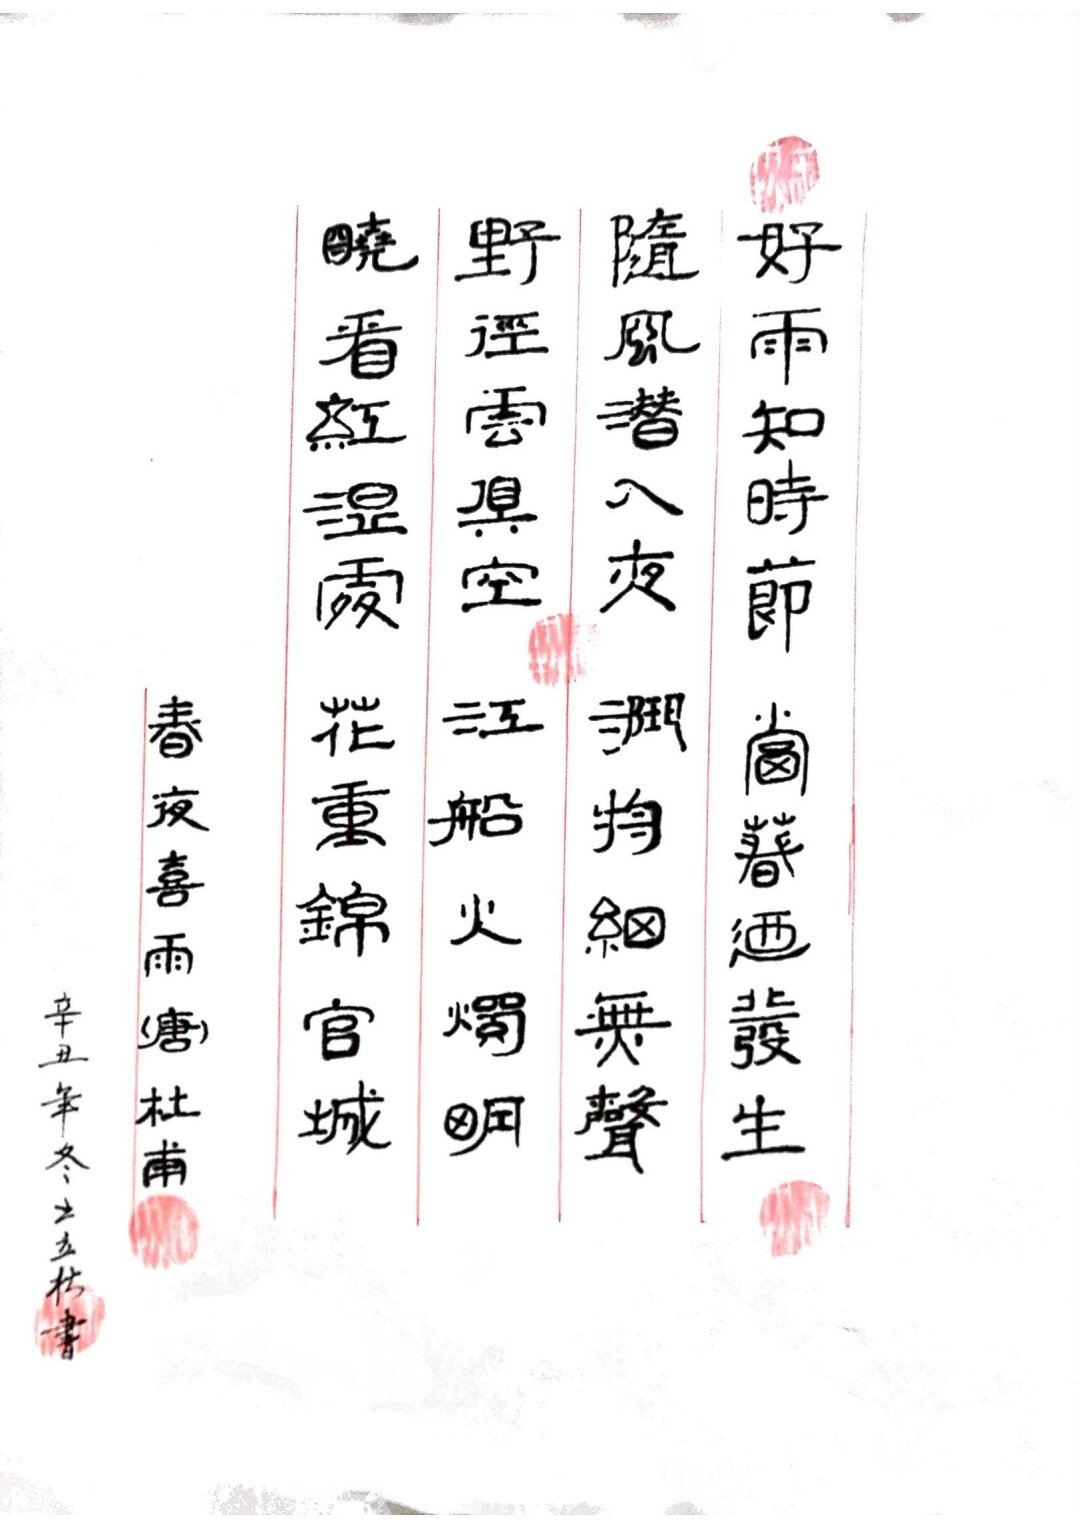 好雨知時節 當春迺發生
隨風潛入夜 潤物細無聲
野徑雲俱空 江船火燭明
曉看紅濕處 花重錦官城
春夜喜雨(唐)杜甫
辛丑年冬立書